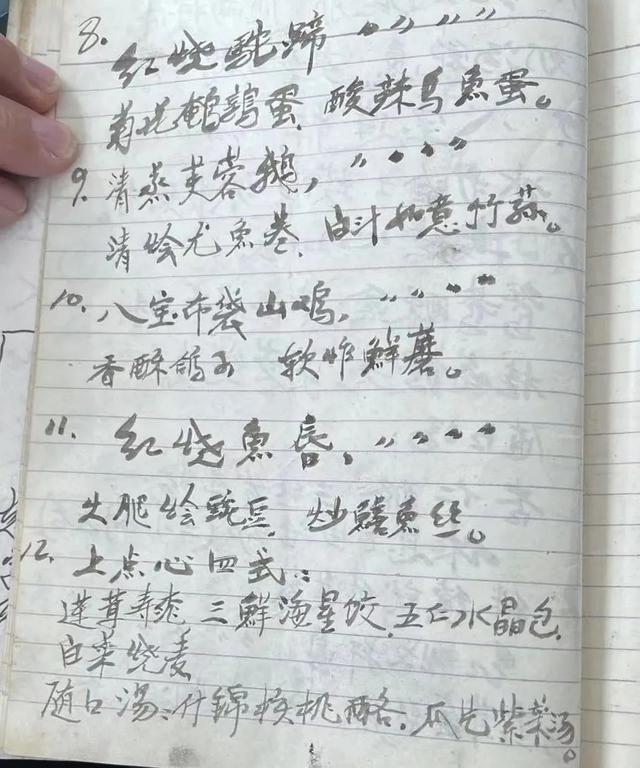 8. 红烧駝蹄 〃〃〃〃
菊花鹌鹑蛋. 酸辣乌魚蛋。
9. 清蒸芙蓉鵝, 〃〃〃〃
清烩尤魚卷. 白汁如意竹荪。
10. 八宝布袋山鸡, 〃〃〃〃
香酥鸽子 软炸鮮蘑。
11. 红烧魚唇, 〃〃〃〃
火腿烩豌豆. 炒鳝魚丝。
12. 上点心四式:
莲茸寿桃 三鮮海星饺. 五仁水晶包.
白菜烧麦
随口湯: 什錦核桃酪. 瓜片紫菜汤。